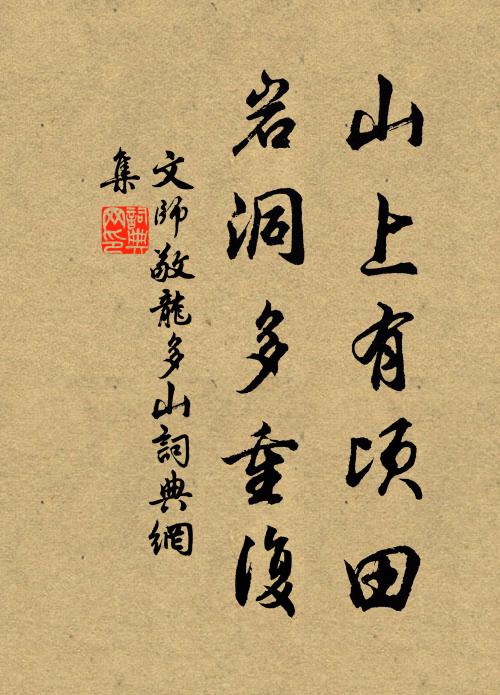 山上有頃田
岩洞多重復
文師敬龍多山詞典網
集
詞典
网印